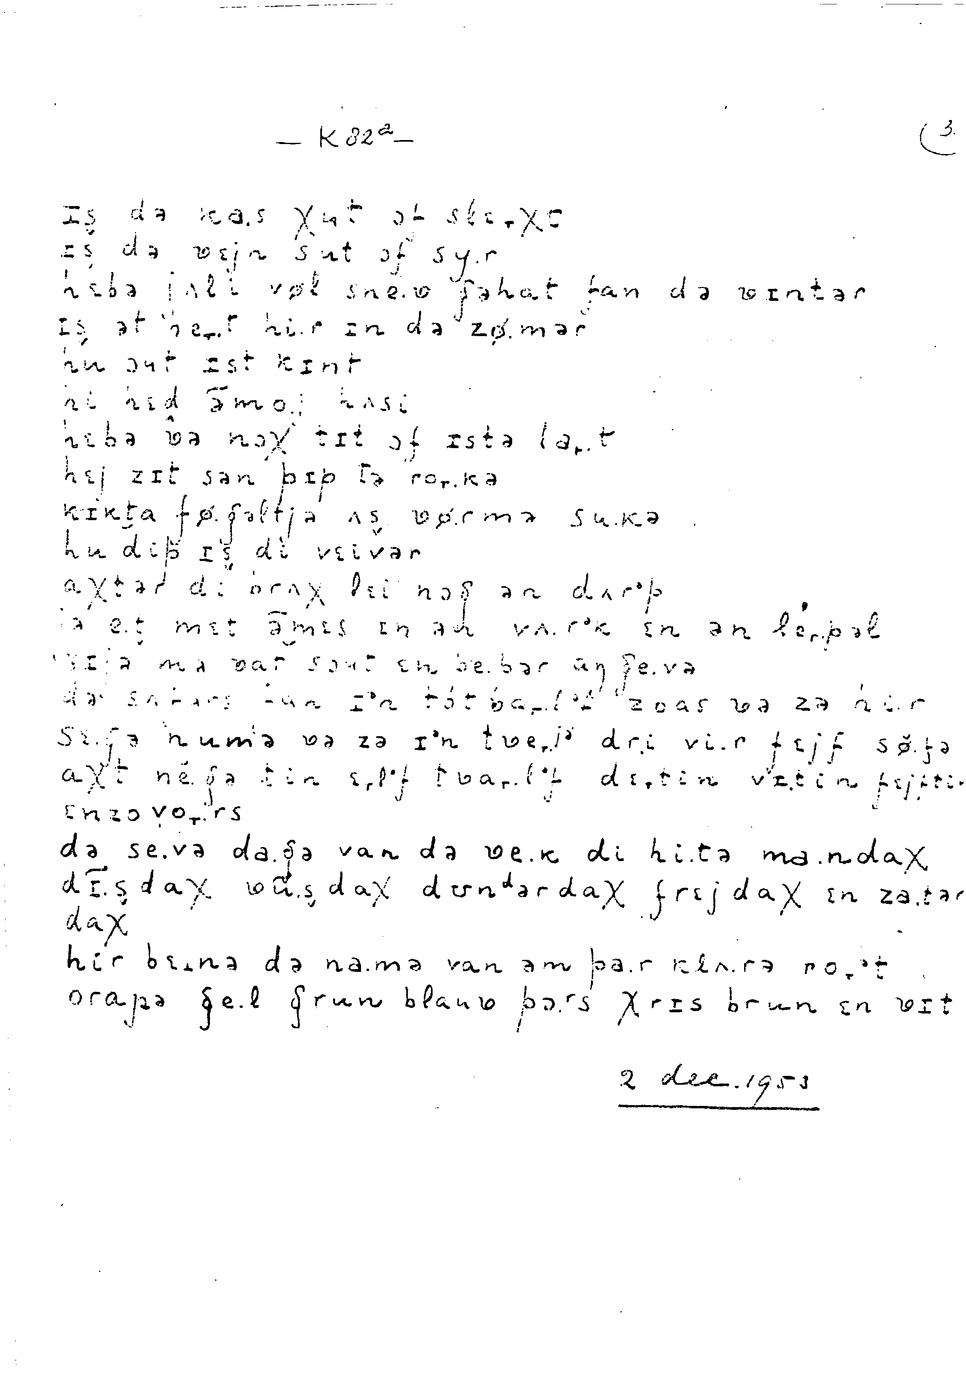 — K 82ᵃ —
(3.
ɪş də ka.s χut ɔf slɛ.χt
ɪş də wɛjn sut ɔf sy.r
hɛbə jʌli vøl sne.w ɡəhat fan də wɪntər
ɪş ət he.t hi.r ɪn də zø.mər
hu ɔut ɪst kɪnt
hi hɛd əmo.j hʌsi
hɛbə wə nɔχ tɪt ɔf ɪstə la.t
hɛj zɪt sən pɪp tə ro.kə
kɪkta fø.ɡəltjə ʌş wø.rmə su.kə
hu dip ɪş di vɛivər
aχtər di brʌχ lɛi nɔɡ ən dʌrᵊp
mɛt ɛn ən vʌ.rᵊk ɛn ən lé.pəl
mə war sɔut ɛn be.bər aŋ ɡe.va
zoas wə zə hi.r
numə wə zə ɪᵊn twe.jə dri vi.r fɛjf sø.fə
aχt né.ɡə tin ɛ.lᵊf twa.lᵊf dɛ.tin vɛ.tin fɛjfti
ɛnzovo.rs
də se.və da.ɡə van də we.k di hi.tə ma.ndaχ
dɪ̄.şdaχ wũ.şdaχ dʊndərdaχ frɛjdaχ ɛn za.tər
daχ
hir bɛ.nə də na.mə van əm pa.r klʌ.rə ro.ᵊt
oraɲə ɡe.l ɡrun blauw pə.rs χrɪs brun ɛn wɪt
2 dec. 1953